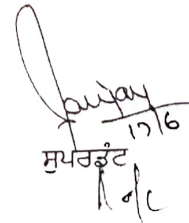 Sanjay
17/6
ਸੁਪਰਡੰਟ